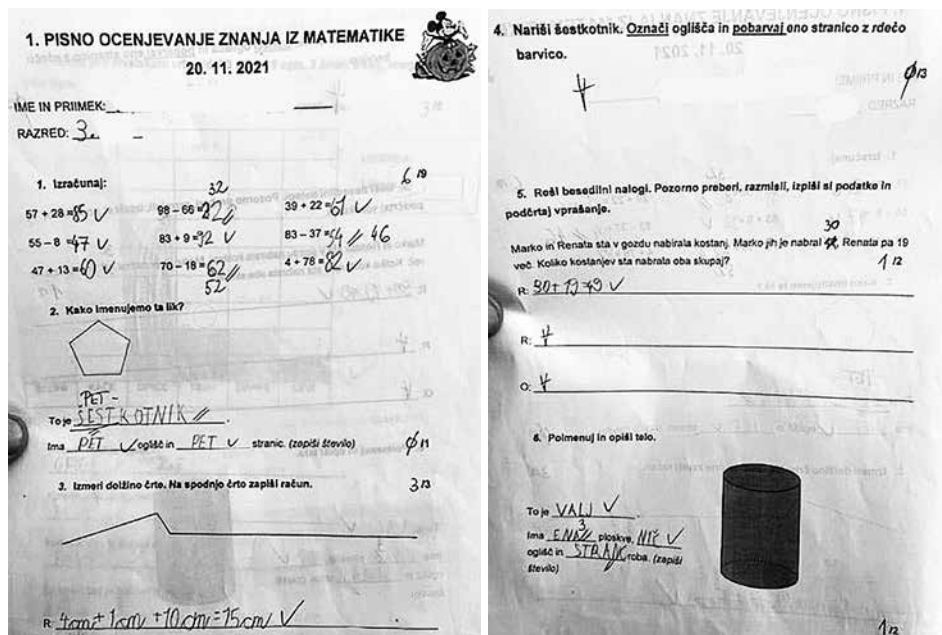 1. PISNO OCENJEVANJE ZNANJA IZ MATEMATIKE
20. 11. 2021
IME IN PRIIMEK:
RAZRED: 3.
6/9
1. Izračunaj:
32
57 + 28 = 85 98 – 66 = 22 39 + 22 = 61
55 – 8 = 47 83 + 9 = 92 83 – 37 = 54 46
47 + 13 = 60 70 – 18 = 62 4 + 78 = 82
52
2. Kako imenujemo ta lik?
PET-
To je ŠESTKOTNIK
Ima PET oglišč in PET stranic. (zapiši število) 0/1
3. Izmeri dolžino črte. Na spodnjo črto zapiši račun. 3/3
R: 4cm + 1cm + 10cm = 15cm
4. Nariši šestkotnik. Označi oglišča in pobarvaj eno stranico z rdečo
barvico.
0/3
5. Reši besedilni nalogi. Pozorno preberi, razmisli, izpiši si podatke in
podčrtaj vprašanje.
30
Marko in Renata sta v gozdu nabirala kostanj. Marko jih je nabral Renata pa 19
več. Koliko kostanjev sta nabrala oba skupaj? 1/2
R: 30 + 19 = 49
R:
O:
6. Poimenuj in opiši telo.
To je VALJ.
3
Ima ENA ploskve, NIČ
oglišč in roba. (zapiši
število)
1/2